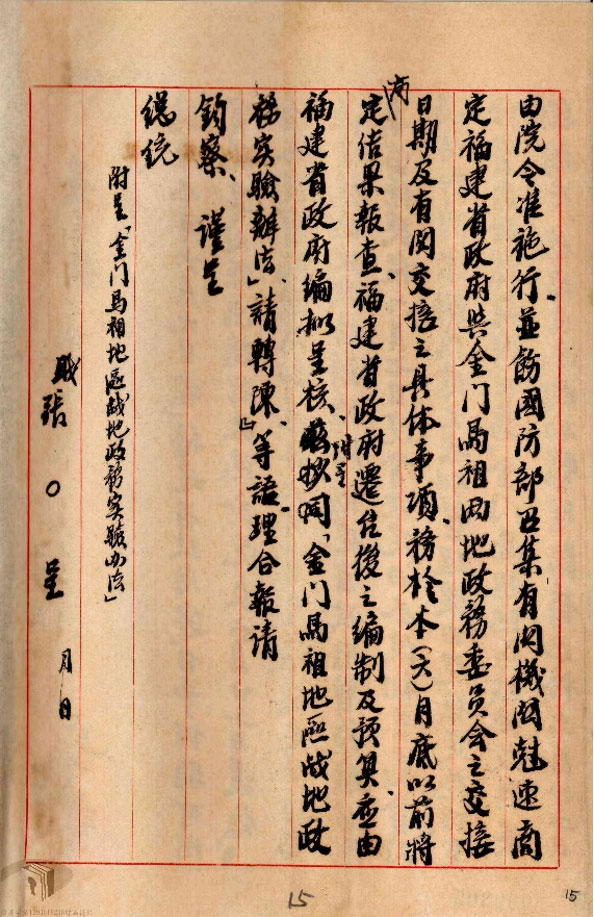 由院令准施行、並飭國防部召集有関機関尅速商
定福建省政府与金门馬祖両地政務委员会之交接
日期及有関交接之具体事項、務於本(六)月底以前將
商
定结果報查、福建省政府遷台後之編制及預算、应由
福建省政府編拟呈核、
附呈
抄同「金门馬祖地區战地政
務实驗辦法」請轉陳』等語、理合報请
鈞察、謹呈
總统
附呈「金门馬祖地區战地政務实驗办法」
职張○呈 月 日
15
15